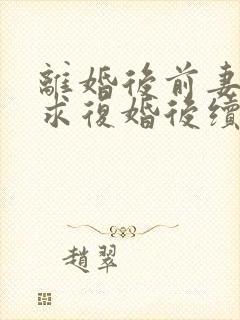 離婚後前妻
求復婚後續
趙翠